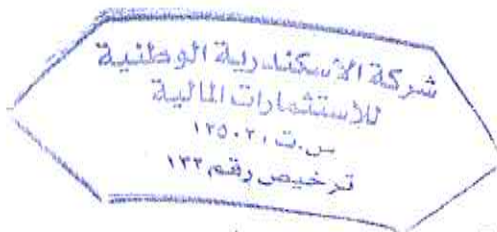 شركة الاسكندرية الوطنية
للاستثمارات المالية
س.ت ١٣٥٠٣١
ترخيص رقم ١٣٣